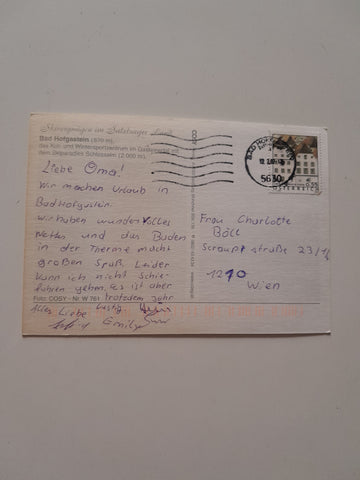 Skivergnügen im Salzburger Land
Bad Hofgastein (870 m),
das Kur- und Wintersportzentrum im Gasteinertal mit
dem Skiparadies Schlossalm (2 000 m).
Liebe Oma!
Wir machen Urlaub in
Bad Hofgastein.
Wir haben wundervolles
Wetter und das Baden
in der Therme macht
großen Spaß. Leider
kann ich nicht Schi-
fahren gehn, es ist aber
trotzdem sehr
lustig.
Alles Liebe
Emily
Foto: COSY - Nr. W 761
BAD HOFGASTEIN
5630
ÖSTERREICH
0,55
Frau Charlotte
Böll
straße 23/
1210
Wien